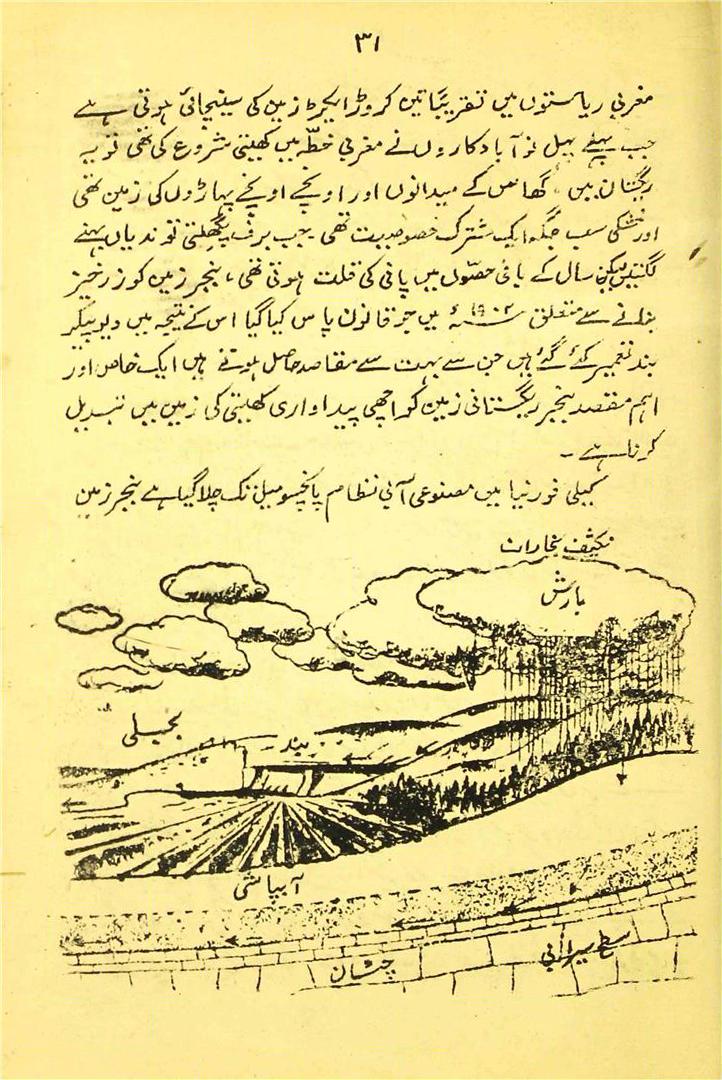 ۳۱
مغربی ریاستوں میں تقریبًا تین کروڑ ایکڑ زمین کی سینچائی ہوتی ہے
جب پہلے پہل نوآبادکاروں نے مغربی خطّہ میں کھیتی شروع کی تھی تو یہ
رگستان میں، گھاس کے میدانوں اور اونچے اونچے پہاڑوں کی زمین تھی
اور خشکی سب جگہ ایک مشترک خصوصیت تھی۔ جب برف پگھلتی تو ندیاں بہنے
لگتیں لیکن سال کے باقی حصّوں میں پانی کی قلت ہوتی تھی، بنجر زمین کو زرخیز
بنانے سے متعلق ۱۹۰۲ء میں جو قانون پاس کیا گیا اس کے نتیجہ میں دیوپیکر
بند تعمیر کئے گئے ہیں جن سے بہت سے مقاصد حاصل ہوتے ہیں ایک خاص اور
اہم مقصد بنجر ریگستانی زمین کو اچھی پیداواری کھیتی کی زمین میں تبدیل
کرنا ہے ۔
کیلی فورنیا میں مصنوعی آبی نظام پانچسو میل تک چلا گیا ہے بنجر زمین
تکثیف بخارات
بارش
بجلی
بند
آبپاشی
سطح سیرابی
چٹان